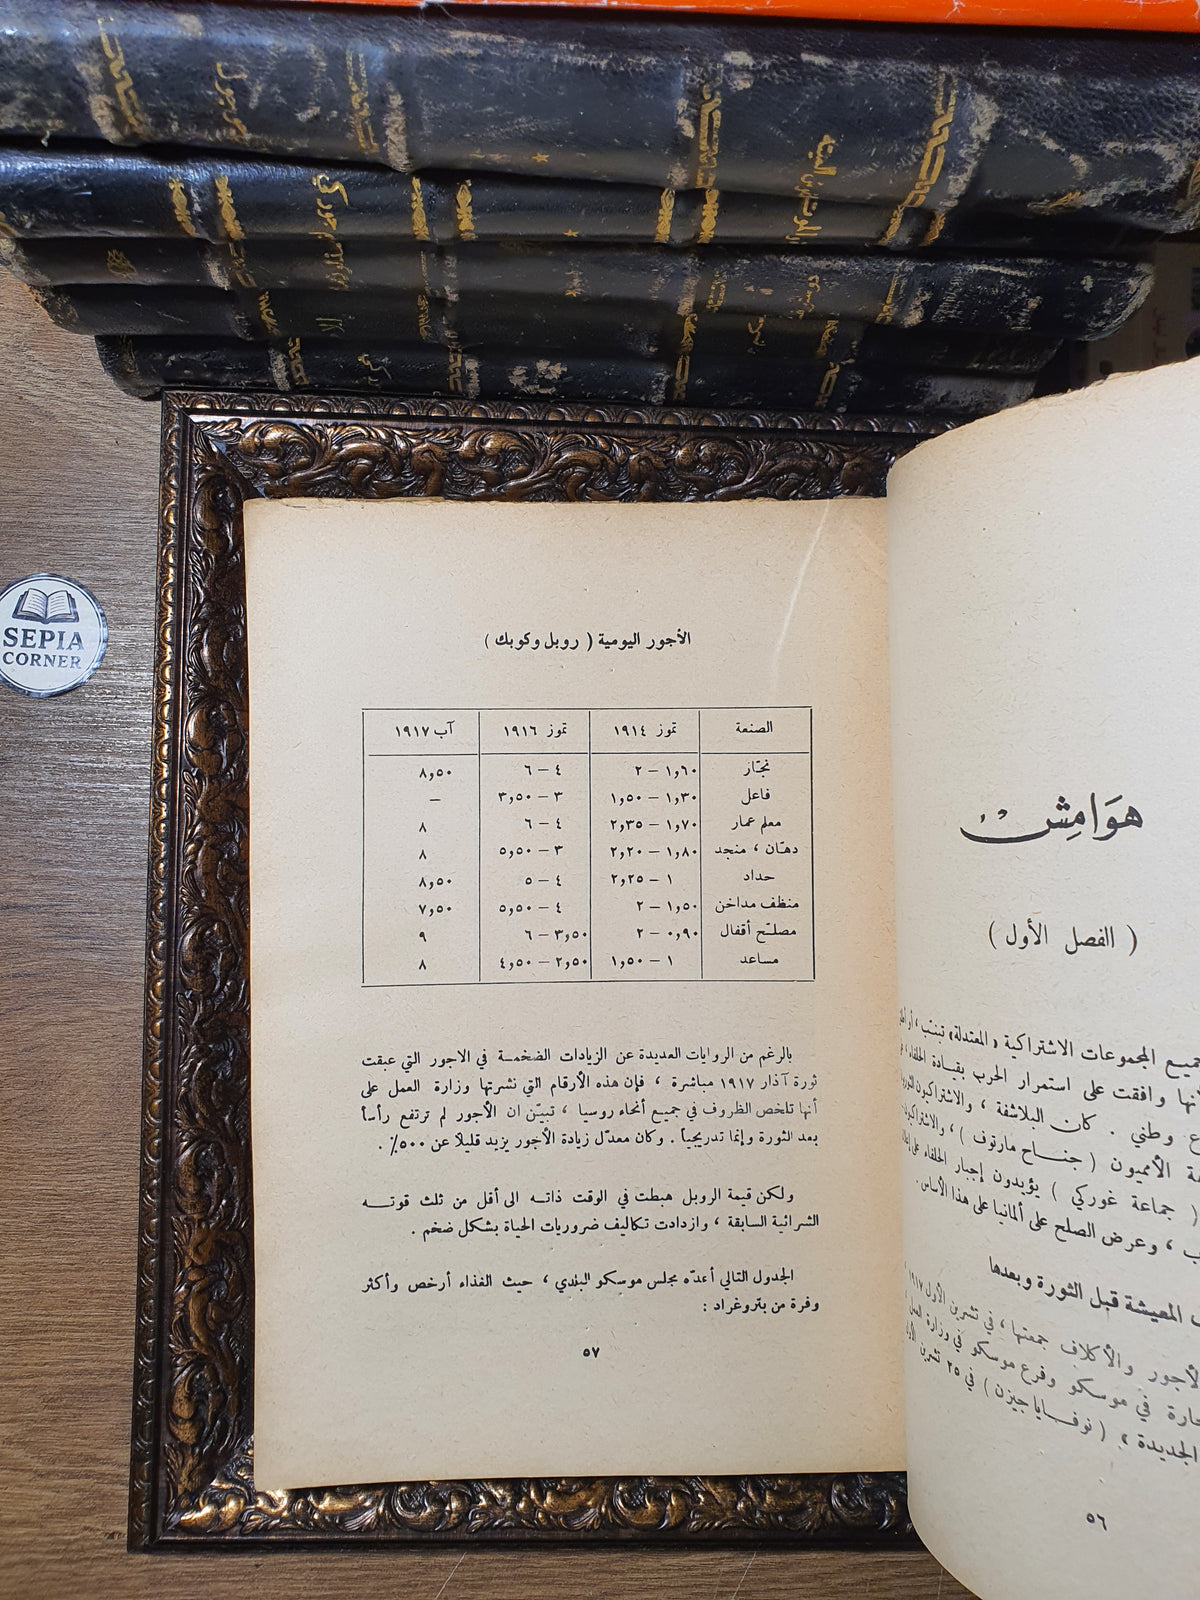 SEPIA
CORNER
هوامش
( الفصل الأول )
جميع المجموعات الاشتراكية « المعتدلة »
وافقت على استمرار الحرب بقيادة الحلفاء
وطني . كان البلاشفة ، والاشتراكيون
الأمميون ( جناح مارتوف ) ،
( جماعة غوركي ) يؤيدون إجبار الحلفاء على
، وعرض الصلح على ألمانيا على هذا الأساس .
المعيشة قبل الثورة وبعدها
الأجور والأكلاف جمعتها ، في تشرين الأول ١٩١٧
في موسكو وفرع موسكو في وزارة العمل
الجديدة » ( نوفايا جيزن ) في ٢٥ تشرين
٥٦
الأجور اليومية ( روبل وكوبك )
الصنعة تموز ١٩١٤ تموز ١٩١٦ آب ١٩١٧
نجّار ١,٦٠ – ٢ ٤ – ٦ ٨,٥٠
فاعل ١,٣٠ – ١,٥٠ ٣ – ٣,٥٠ –
معلم عمار ١,٧٠ – ٢,٣٥ ٤ – ٦ ٨
دهّان ، منجد ١,٨٠ – ٢,٢٠ ٣ – ٥,٥٠ ٨
حداد ١ – ٢,٢٥ ٤ – ٥ ٨,٥٠
منظف مداخن ١,٥٠ – ٢ ٤ – ٥,٥٠ ٧,٥٠
مصلّح أقفال ٠,٩٠ – ٢ ٣,٥٠ – ٦ ٩
مساعد ١ – ١,٥٠ ٢,٥٠ – ٤,٥٠ ٨
بالرغم من الروايات العديدة عن الزيادات الضخمة في الاجور التي عبقت
ثورة آذار ١٩١٧ مباشرة ، فإن هذه الأرقام التي نشرتها وزارة العمل على
أنها تلخص الظروف في جميع أنحاء روسيا ، تبيّن ان الأجور لم ترتفع رأساً
بعد الثورة وإنما تدريجياً . وكان معدّل زيادة الأجور يزيد قليلاً عن ٥٠٠٪ .
ولكن قيمة الروبل هبطت في الوقت ذاته الى أقل من ثلث قوته
الشرائية السابقة ، وازدادت تكاليف ضروريات الحياة بشكل ضخم .
الجدول التالي أعدّه مجلس موسكو البلدي ، حيث الغذاء أرخص وأكثر
وفرة من بتروغراد :
٥٧